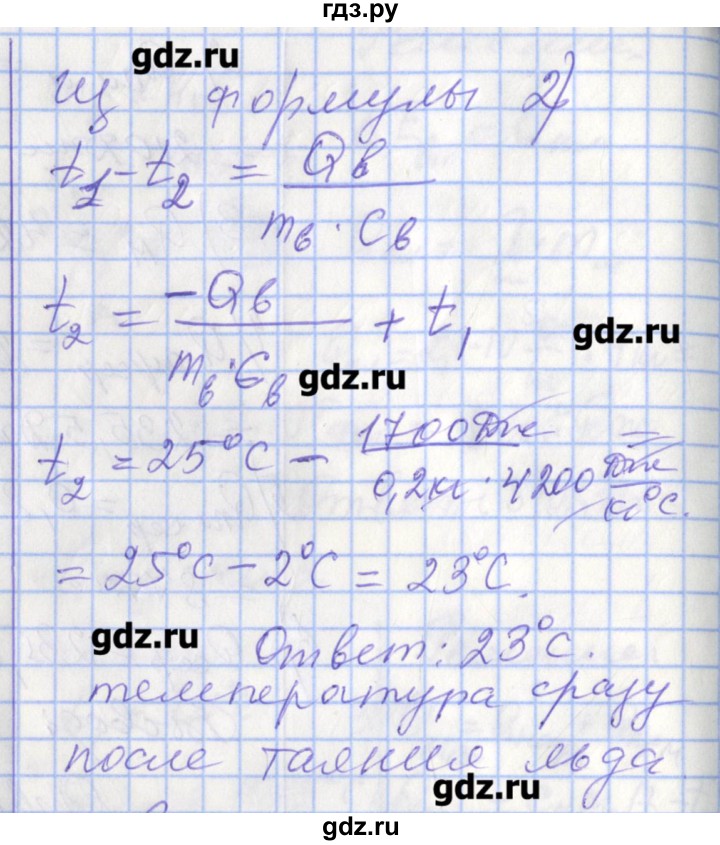 гдз.ру
gdz.ru
Из формулы 2)
t₁ - t₂ = Qв / (mв · Cв)
t₂ = -Qв / (mв · Cв) + t₁
gdz.ru
gdz.ru
t₂ = 25°C - 1700Дж / (0,2кг · 4200 Дж/кг°C) =
= 25°C - 2°C = 23°C.
gdz.ru
Ответ: 23°C.
температура сразу
после таяния льда
gdz.ru
gdz.ru